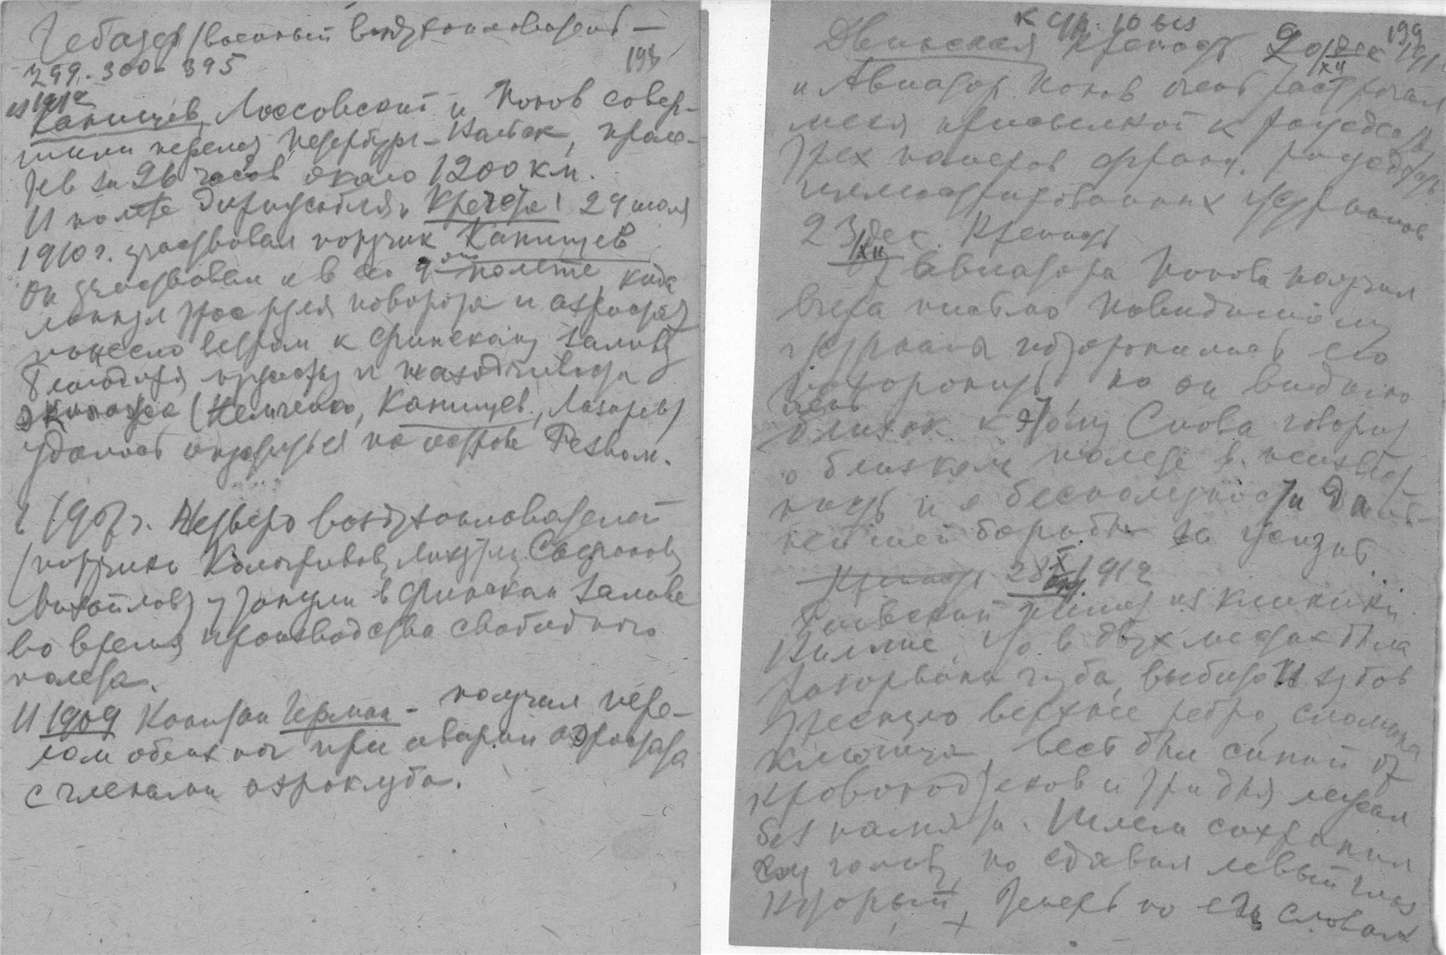 Гебауер (военный воздухоплаватель —
299-300-395
193
из 1912
Канищев, Лоссовский и Попов совер-
шили перелет Петербург – Нальчик, проле-
тев за 26 часов около 1200 км.
И полете дирижабля „Кречет“ 29 июля
1910 г. участвовал поручик Канищев
Он участвовал и в его 9ом полете, когда
лопнул трос руля поворота и аэростат
понесло ветром к Финскому заливу
Благодаря мужеству и находчивости
экипажа (Немченко, Канищев, Лазарев)
удалось опуститься на остров Резвом.
В 1907 г. Четверо воздухоплавателей
(поручики
Михайлов) утонули в Финском заливе
во время производства свободного
полета.
И 1909 Капитан Герман – получил пере-
лом обеих ног при аварии аэростата
с членами аэроклуба.
К стр. 10 bis
194
Двинская крепость 20 дек 191
XII
и Авиатор Попов очень растрогал
меня присылкой к рождеству
трех номеров франц. рождеств.
иллюстрированных журналов
23 дек. Крепость
XII
От авиатора Попова получил
вчера письмо Повидимому
журналы поторопились его
похоронить но он видимо
очень
близок к этому Снова говорит
о близком полете в неизвест
ность и о бесполезности даль-
нейшей борьбы за жизнь.
Крепость 28 X 1912
Раевский пишет из клиники
Вилле, что в двух местах была
разорвана губа, выбито 11 зубов
треснуло верхнее ребро, сломана
ключица, весь был синий от
кровоподтеков и три дня лежал
без памяти. Шлем сохранил
ему голову, но сдавил левый глаз
который, теперь по его словам